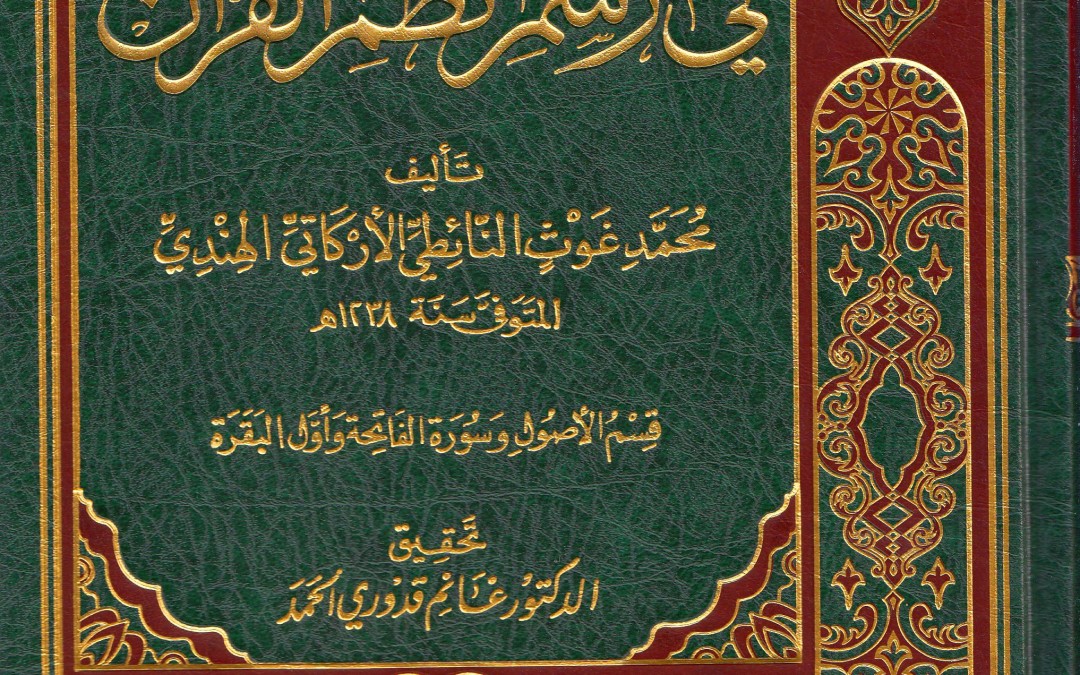 في رسم نظم القرآن
تَأليف
مُحَمَّدِ غَوْثٍ النَّائِطِيِّ الأَرْكَاتيِّ الهِنْدِيِّ
المتَوَفَّى سَنَة ١٢٣٨ه
قِسْمُ الأُصُولِ وَسُورَة الفَاتِحَة وَأوَّل البَقَرَة
تَحقِيق
الدكتور غَانِم قَدّوري الحَمَد